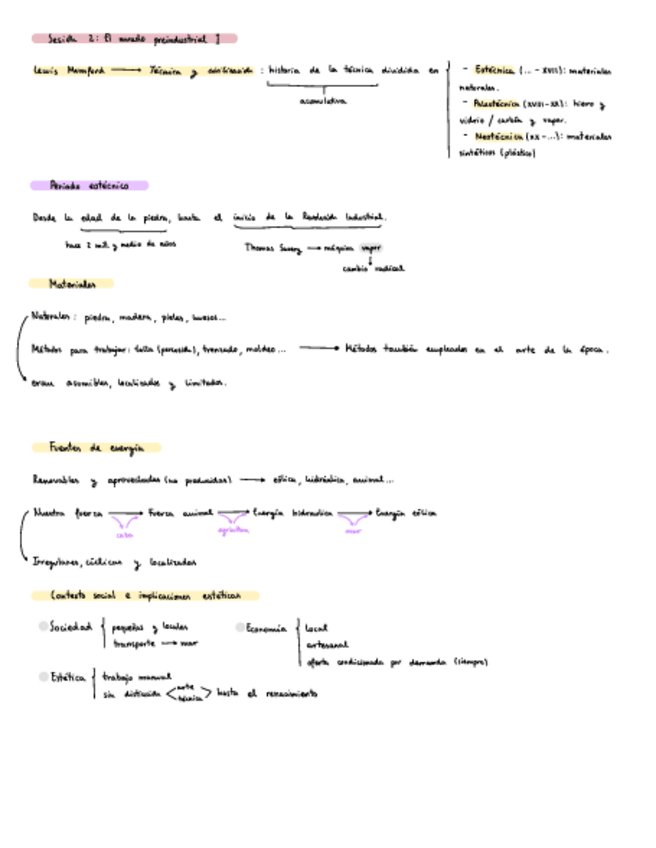 Sesión 2: El mundo preindustrial I
Lewis Mumford → Técnica y civilización : historia de la técnica dividida en
acumulativa
- Eotécnica (... - XVII): materiales
naturales.
- Paleotécnica (XVIII-XX): hierro y
vidrio / carbón y vapor.
- Neotécnica (XX -...): materiales
sintéticos (plástico)
Periodo eotécnico
Desde la edad de la piedra, hasta el inicio de la Revolución Industrial.
hace 2 mill y medio de años
Thomas Savery → máquina vapor
cambio radical
Materiales
Naturales : piedra, madera, pieles, huesos...
Métodos para trabajar: talla (percusión), trenzado, moldeo... → Métodos también empleados en el arte de la época.
eran asumibles, localizados y limitados.
Fuentes de energía
Renovables y aprovechadas (no producidas) → eólica, hidráulica, animal...
Nuestra fuerza → Fuerza animal → Energía hidraulica → Energía eólica
caza
agricultura
mar
Irregulares, cíclicas y localizadas
Contexto social e implicaciones estéticas
Sociedad
pequeñas y locales
transporte → mar
Economía
local
artesanal
oferta condicionada por demanda (siempre)
Estética
trabajo manual
sin distinción < arte técnica > hasta el renacimiento